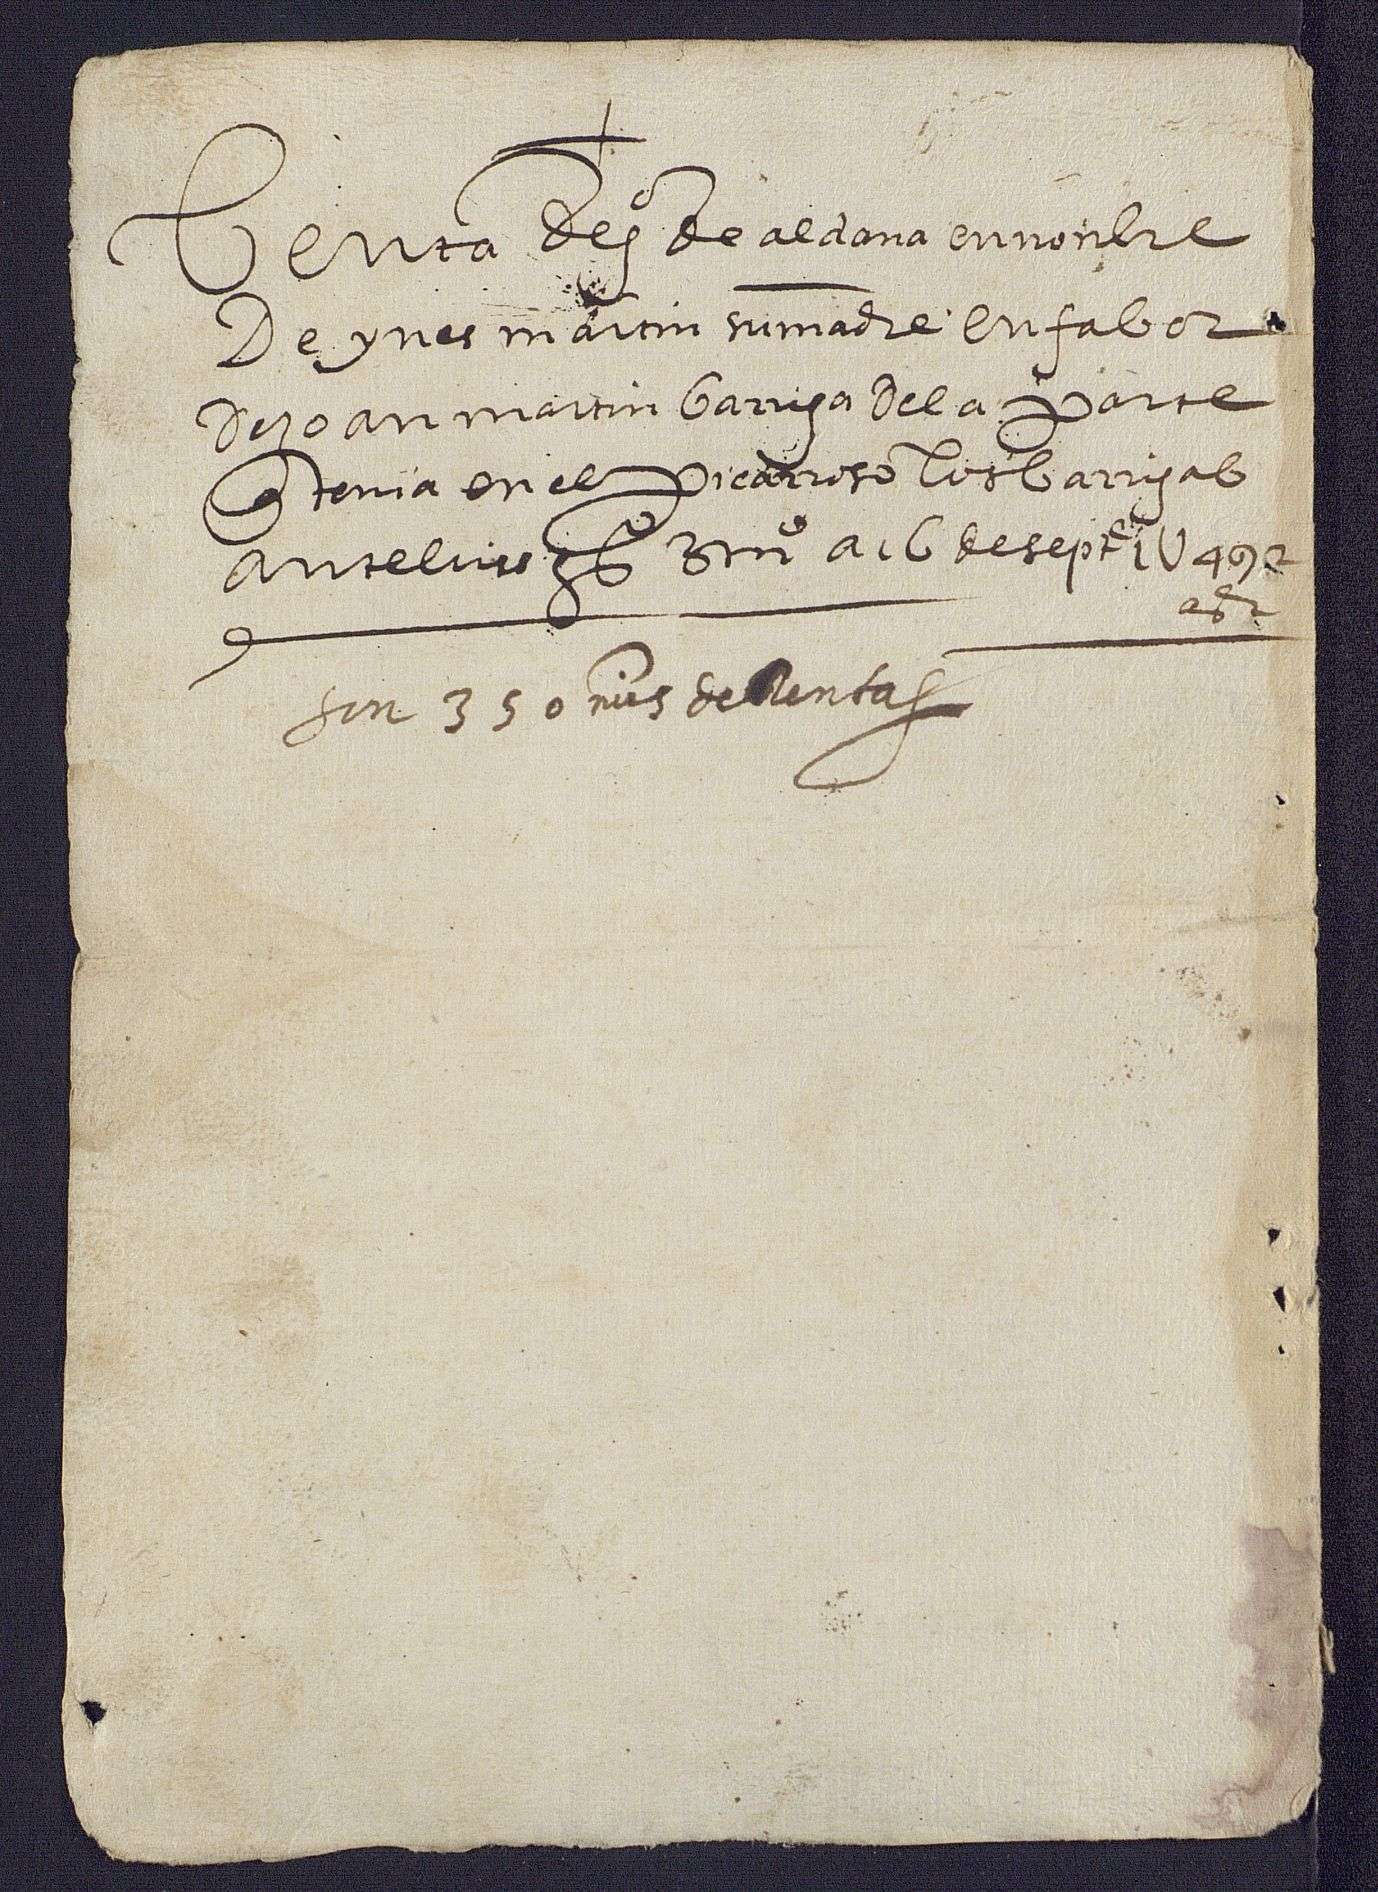 Venta de go de aldana en nonbre
De ynes martin su madre en fabor
De joan martin barriga de la parte
q tenia en el picarroso los barrigas
ante luis a 16 de septe 1U492
son 350 mrs de Renta